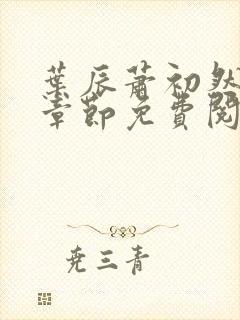 葉辰蕭初然
章節免費閱
堯三青